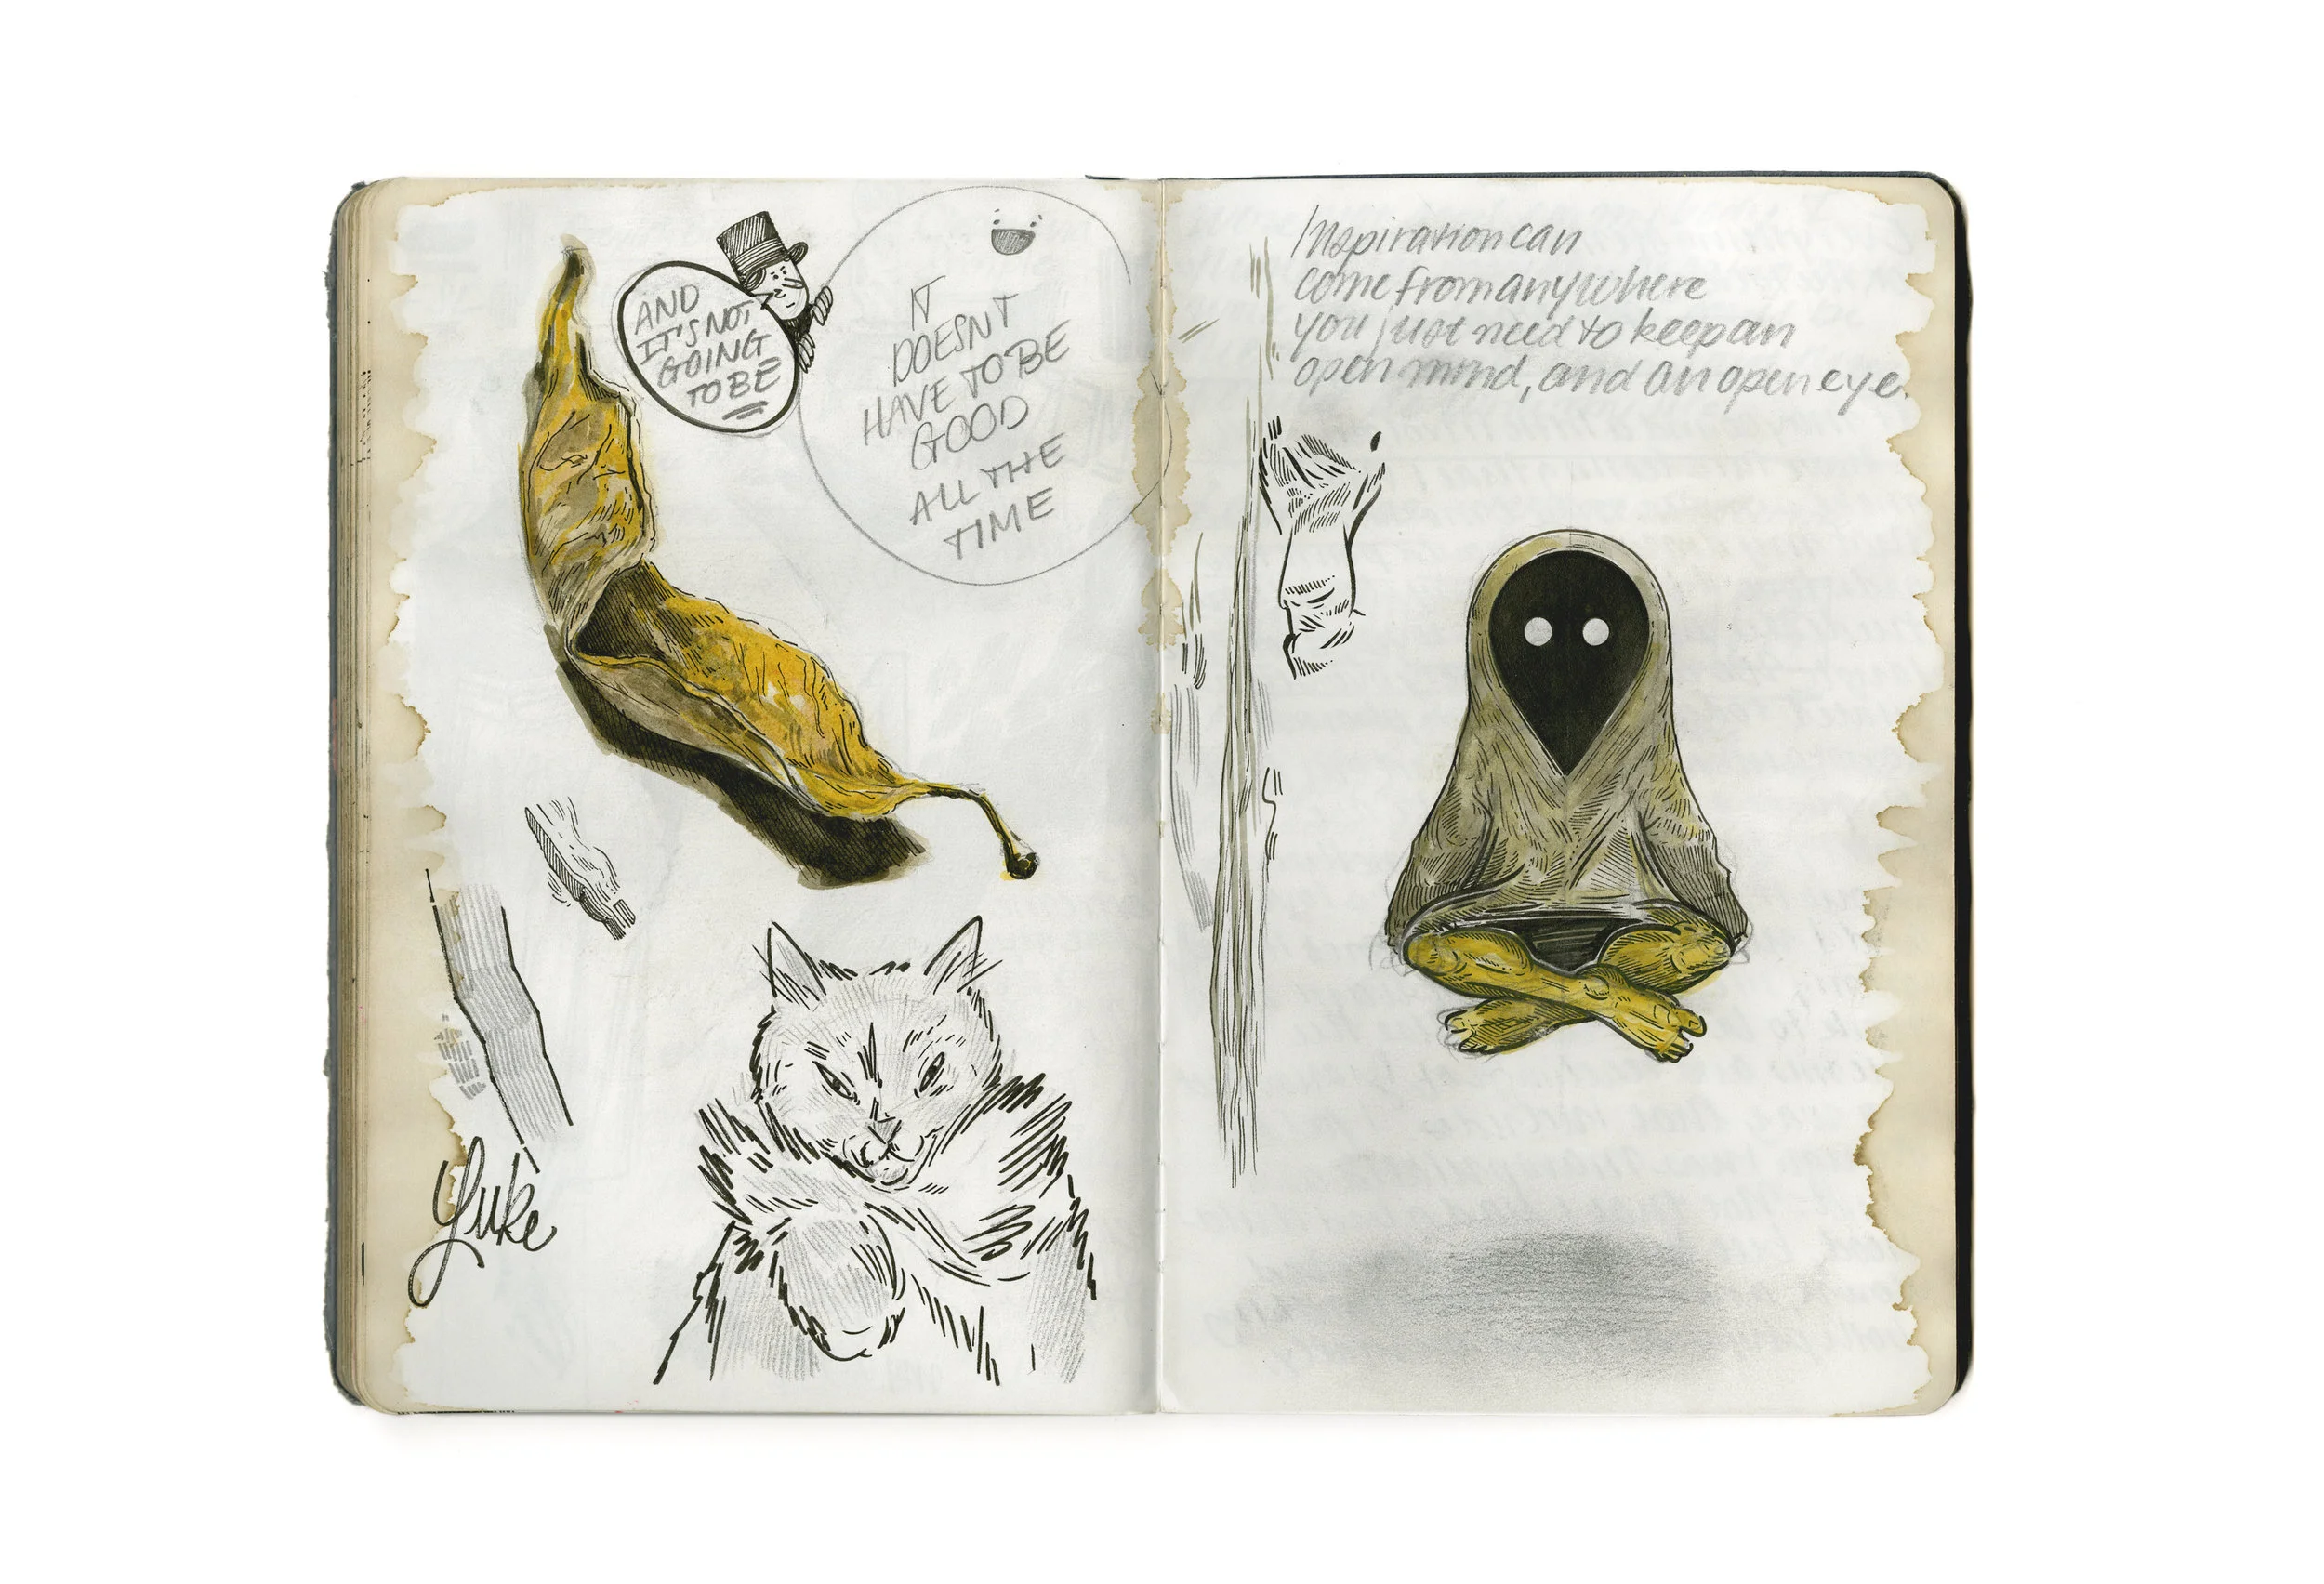 AND
IT'S NOT
GOING
TO BE
IT
DOESNT
HAVE TO BE
GOOD
ALL THE
TIME
Inspiration can
come from anywhere
you just need to keep an
open mind, and an open eye.
Yuke